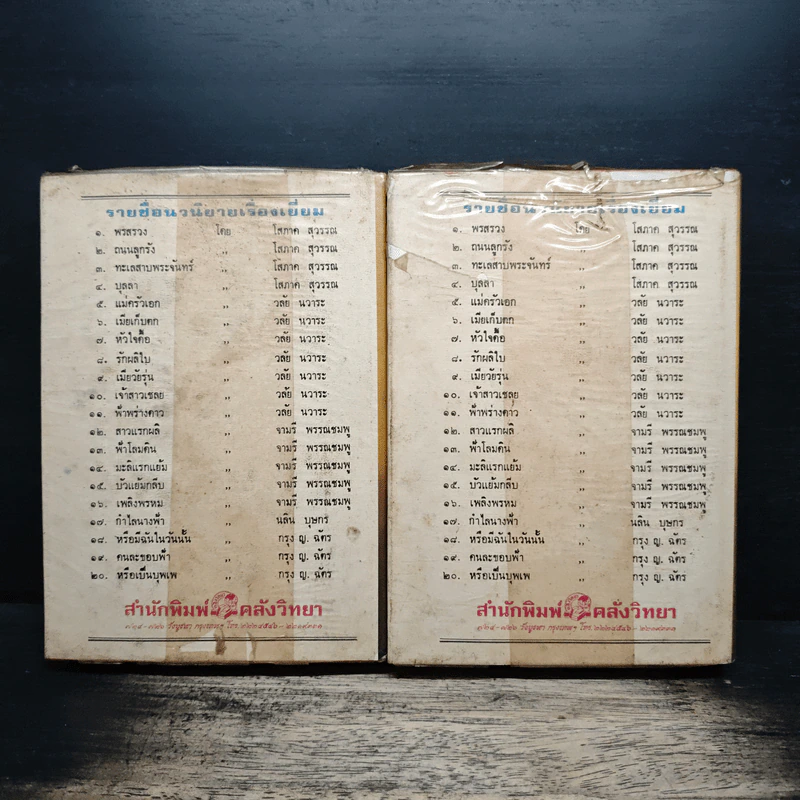 รายชื่อนวนิยายเรื่องเยี่ยม
๑. พรสรวง โดย โสภาค สุวรรณ
๒. ถนนลูกรัง ,, โสภาค สุวรรณ
๓. ทะเลสาบพระจันทร์ ,, โสภาค สุวรรณ
๔. บุลลา ,, โสภาค สุวรรณ
๕. แม่ครัวเอก ,, วลัย นวาระ
๖. เมียเก็บตก ,, วลัย นวาระ
๗. หัวใจดื้อ ,, วลัย นวาระ
๘. รักผลิใบ ,, วลัย นวาระ
๙. เมียวัยรุ่น ,, วลัย นวาระ
๑๐. เจ้าสาวเชลย ,, วลัย นวาระ
๑๑. ฟ้าพร่างดาว ,, วลัย นวาระ
๑๒. สาวแรกผลิ ,, จามรี พรรณชมพู
๑๓. ฟ้าโลมดิน ,, จามรี พรรณชมพู
๑๔. มะลิแรกแย้ม ,, จามรี พรรณชมพู
๑๕. บัวแย้มกลีบ ,, จามรี พรรณชมพู
๑๖. เพลิงพรหม ,, จามรี พรรณชมพู
๑๗. กำไลนางฟ้า ,, นลิน บุษกร
๑๘. หรือมีฉันในวันนั้น ,, กรุง ญ. ฉัตร
๑๙. คนละขอบฟ้า ,, กรุง ญ. ฉัตร
๒๐. หรือเป็นบุพเพ ,, กรุง ญ. ฉัตร
สำนักพิมพ์ คลังวิทยา
วังบูรพา กรุงเทพฯ โทร.
รายชื่อนวนิยายเรื่องเยี่ยม
๑. พรสรวง โดย โสภาค สุวรรณ
๒. ถนนลูกรัง ,, โสภาค สุวรรณ
๓. ทะเลสาบพระจันทร์ ,, โสภาค สุวรรณ
๔. บุลลา ,, โสภาค สุวรรณ
๕. แม่ครัวเอก ,, วลัย นวาระ
๖. เมียเก็บตก ,, วลัย นวาระ
๗. หัวใจดื้อ ,, วลัย นวาระ
๘. รักผลิใบ ,, วลัย นวาระ
๙. เมียวัยรุ่น ,, วลัย นวาระ
๑๐. เจ้าสาวเชลย ,, วลัย นวาระ
๑๑. ฟ้าพร่างดาว ,, วลัย นวาระ
๑๒. สาวแรกผลิ ,, จามรี พรรณชมพู
๑๓. ฟ้าโลมดิน ,, จามรี พรรณชมพู
๑๔. มะลิแรกแย้ม ,, จามรี พรรณชมพู
๑๕. บัวแย้มกลีบ ,, จามรี พรรณชมพู
๑๖. เพลิงพรหม ,, จามรี พรรณชมพู
๑๗. กำไลนางฟ้า ,, นลิน บุษกร
๑๘. หรือมีฉันในวันนั้น ,, กรุง ญ. ฉัตร
๑๙. คนละขอบฟ้า ,, กรุง ญ. ฉัตร
๒๐. หรือเป็นบุพเพ ,, กรุง ญ. ฉัตร
สำนักพิมพ์ คลังวิทยา
วังบูรพา กรุงเทพฯ โทร.